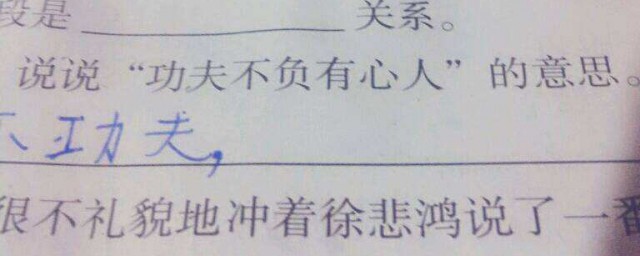 段是____________关系。
说说“功夫不负有心人”的意思。
功夫,
很不礼貌地冲着徐悲鸿说了一番